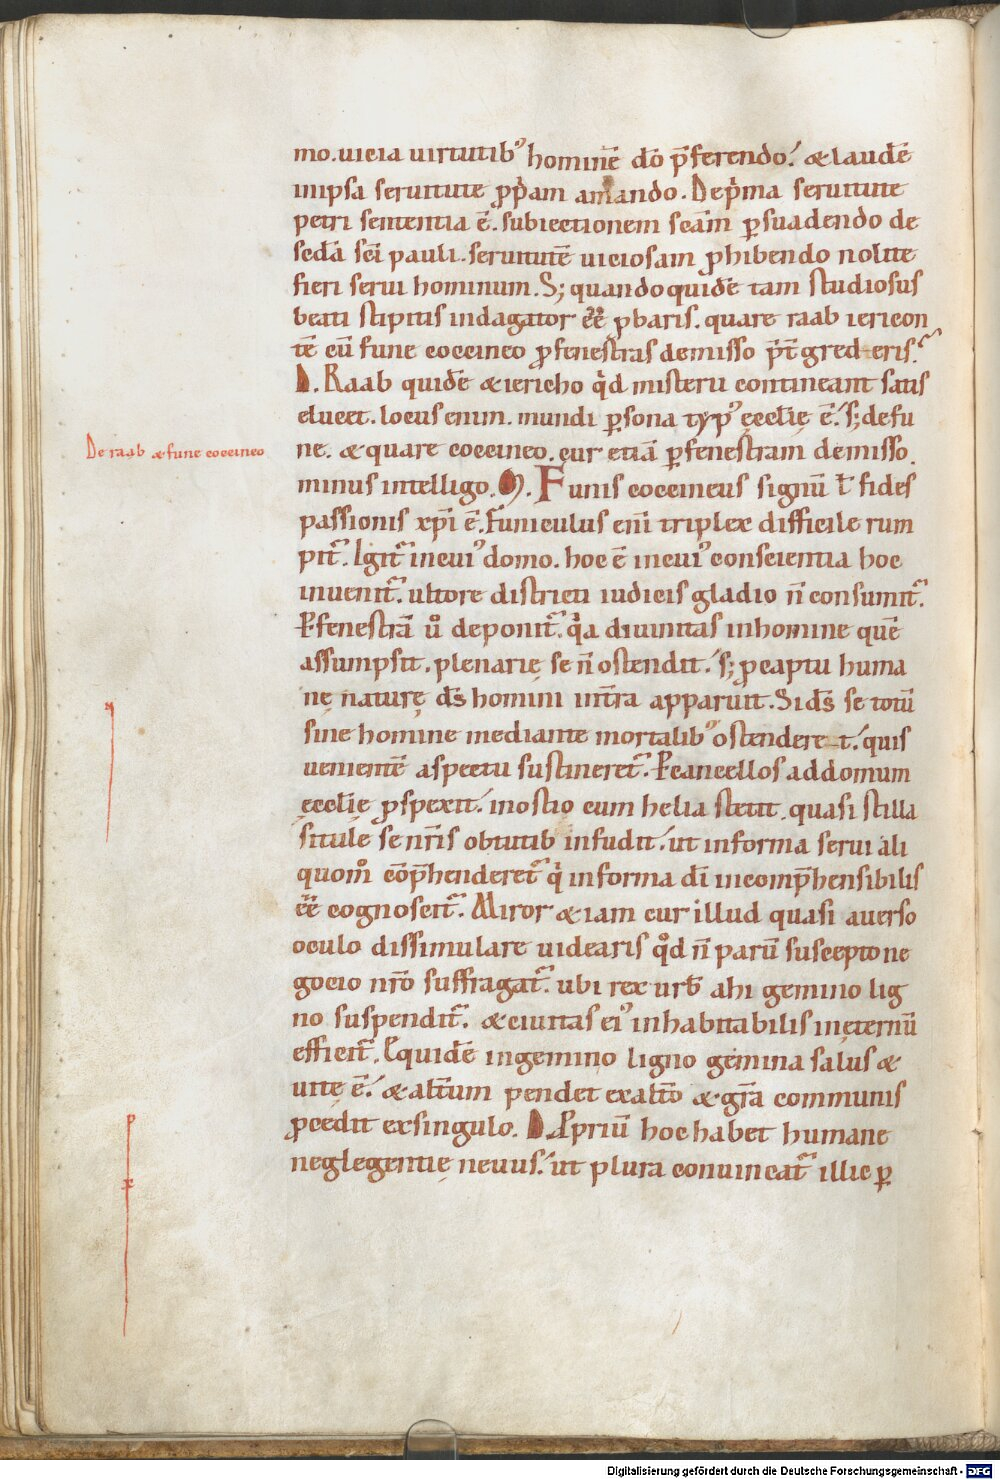 mo. uicia uirtutib᾽ hominē dō p̄ferendo.᾽ & laudē
inipsa seruitute ꝓp̄am amando. De p̄ma seruitute
petri sententia ē. subiectionem scām ꝑsuadendo de
sedā sc̄i pauli. seruitutē uiciosam ꝓhibendo nolite
fieri serui hominum. S; quandoquidē tam studiosus
beati stipitis indagator ēē ꝓbaris. quare raab iericon
tē cū fune coccineo ꝓ fenestras demisso p̄t gred eris.
D. Raab quidē & iericho q̊d misterii contineant satis
elucet. locus enim. mundi ꝑsona typ᾽ ęccl̄ię ē.᾽ s; de fu
De raab & fune coccineo
ne. & quare coccineo. cur etiā ꝑ fenestram demisso.
minus intelligo. M. Funis coccineus signū t̄ fides
passionis xp̄i ē. Funiculus eni triplex difficile rum
pit᷑. Igit᷑ in cui᾽ domo. hoc ē in cui᾽ conscientia hoc
inuenit᷑. ultore districti iudicis gladio n̄ consumit᷑.
Ꝑ fenestrā ů deponit᷑. q̓a diuinitas in homine quē
assumpsit. plenarię se n̄ ostendit.᾽ s; ꝓ captu huma
nę naturę d̄s homini int̄ra apparuit. Si d̄s se totū
sine homine mediante mortalib᾽ ostendere t.᾽ quis
uenientē aspectu sustineret᷑. Ꝑ cancellos ad domum
ęccl̄ię ꝓspexit.᾽ in ostio cum helia stetit. quasi stilla
situlę se nr̄is obtutib infudit.᾽ ut in forma serui ali
quom̊ cōp̄henderet᷑ q̓ in forma dī incomp̄hensibilis
ēē cognoscit᷑. Miror & iam cur illud quasi auerso
oculo dissimulare uidearis q̊d n̄ parū suscepto ne
gocio nr̄o suffragat᷑. ubi rex urb̄ ahi gemino lig
no suspendit᷑. & ciuitas ei᾽ inhabitabilis in ęternū
efficit᷑. Equidē in gemino ligno gemina salus &
uitę ē.᾽ & alt̄um pendet ex alt̄o & gr̄a communis
ꝓcedit ex singulo. D. Ꝑpriū hoc habet humane
neglegentię neuus.᾽ ut plura conuincat᷑ illic ꝑ
Digitalisierung gefördert durch die Deutsche Forschungsgemeinschaft - DFG